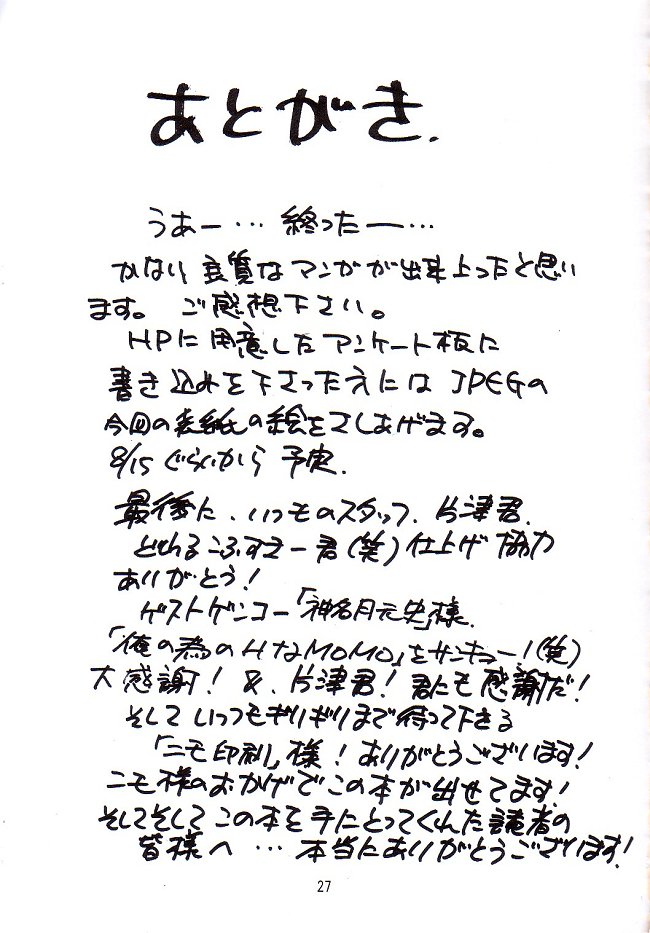 あとがき.
うあー… 終ったー…
かなり良質なマンガが出来上ったと思い
ます。ご感想下さい。
HPに用意したアンケート板に
書き込みを下さった方には JPEGの
今回の表紙の絵をさしあげます。
8/15ぐらいから 予定.
最後に、いつものスタッフ、片津君.
どれるこふすきー君(笑)仕上げ協力
ありがとう!
ゲストゲンコー「神名月元史」様.
「俺の為のHなMOMO」をサンキュー!(笑)
大感謝! &、片津君! 君にも感謝だ!
そしていっつもギリギリまで待って下さる
「ニモ印刷」様! ありがとうございます!
ニモ様のおかげでこの本が出せてます!
そしてそしてこの本を手にとってくれた読者の
皆様へ … 本当にありがとうございます!
27